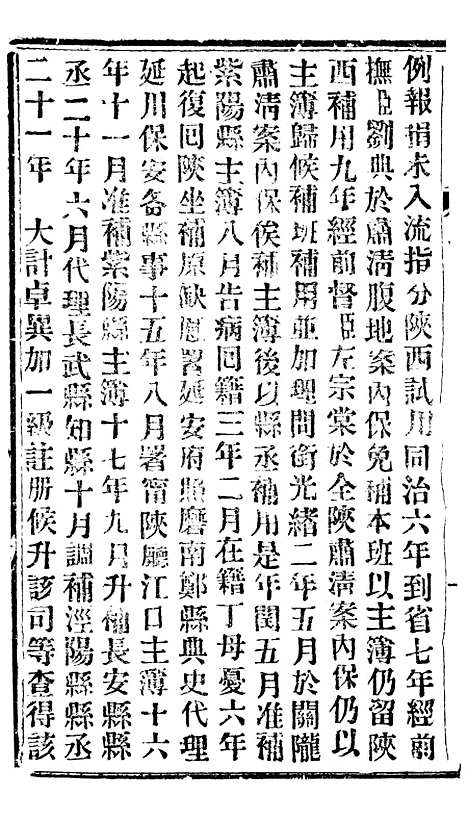 例報捐未入流指分陝西試用同治六年到省七年經前
撫臣劉典於肅清腹地案內保免補本班以主簿仍留陝
西補用九年經前督臣左宗棠於全陝肅清案內保仍以
主簿歸候補班補用並加理問銜光緒二年五月於關隴
肅清案內保俟補主簿後以縣丞補用是年閏五月准補
紫陽縣主簿八月告病回籍三年二月在籍丁母憂六年
起復回陝坐補原缺歷署延安府照磨南鄭縣典史代理
延川保安各縣事十五年八月署甯陝廳江口主簿十六
年十一月准補紫陽縣主簿十七年九月升補長安縣縣
丞二十年六月代理長武縣知縣十月調補涇陽縣縣丞
二十一年 大計卓異加一級註册候升該司等查得該